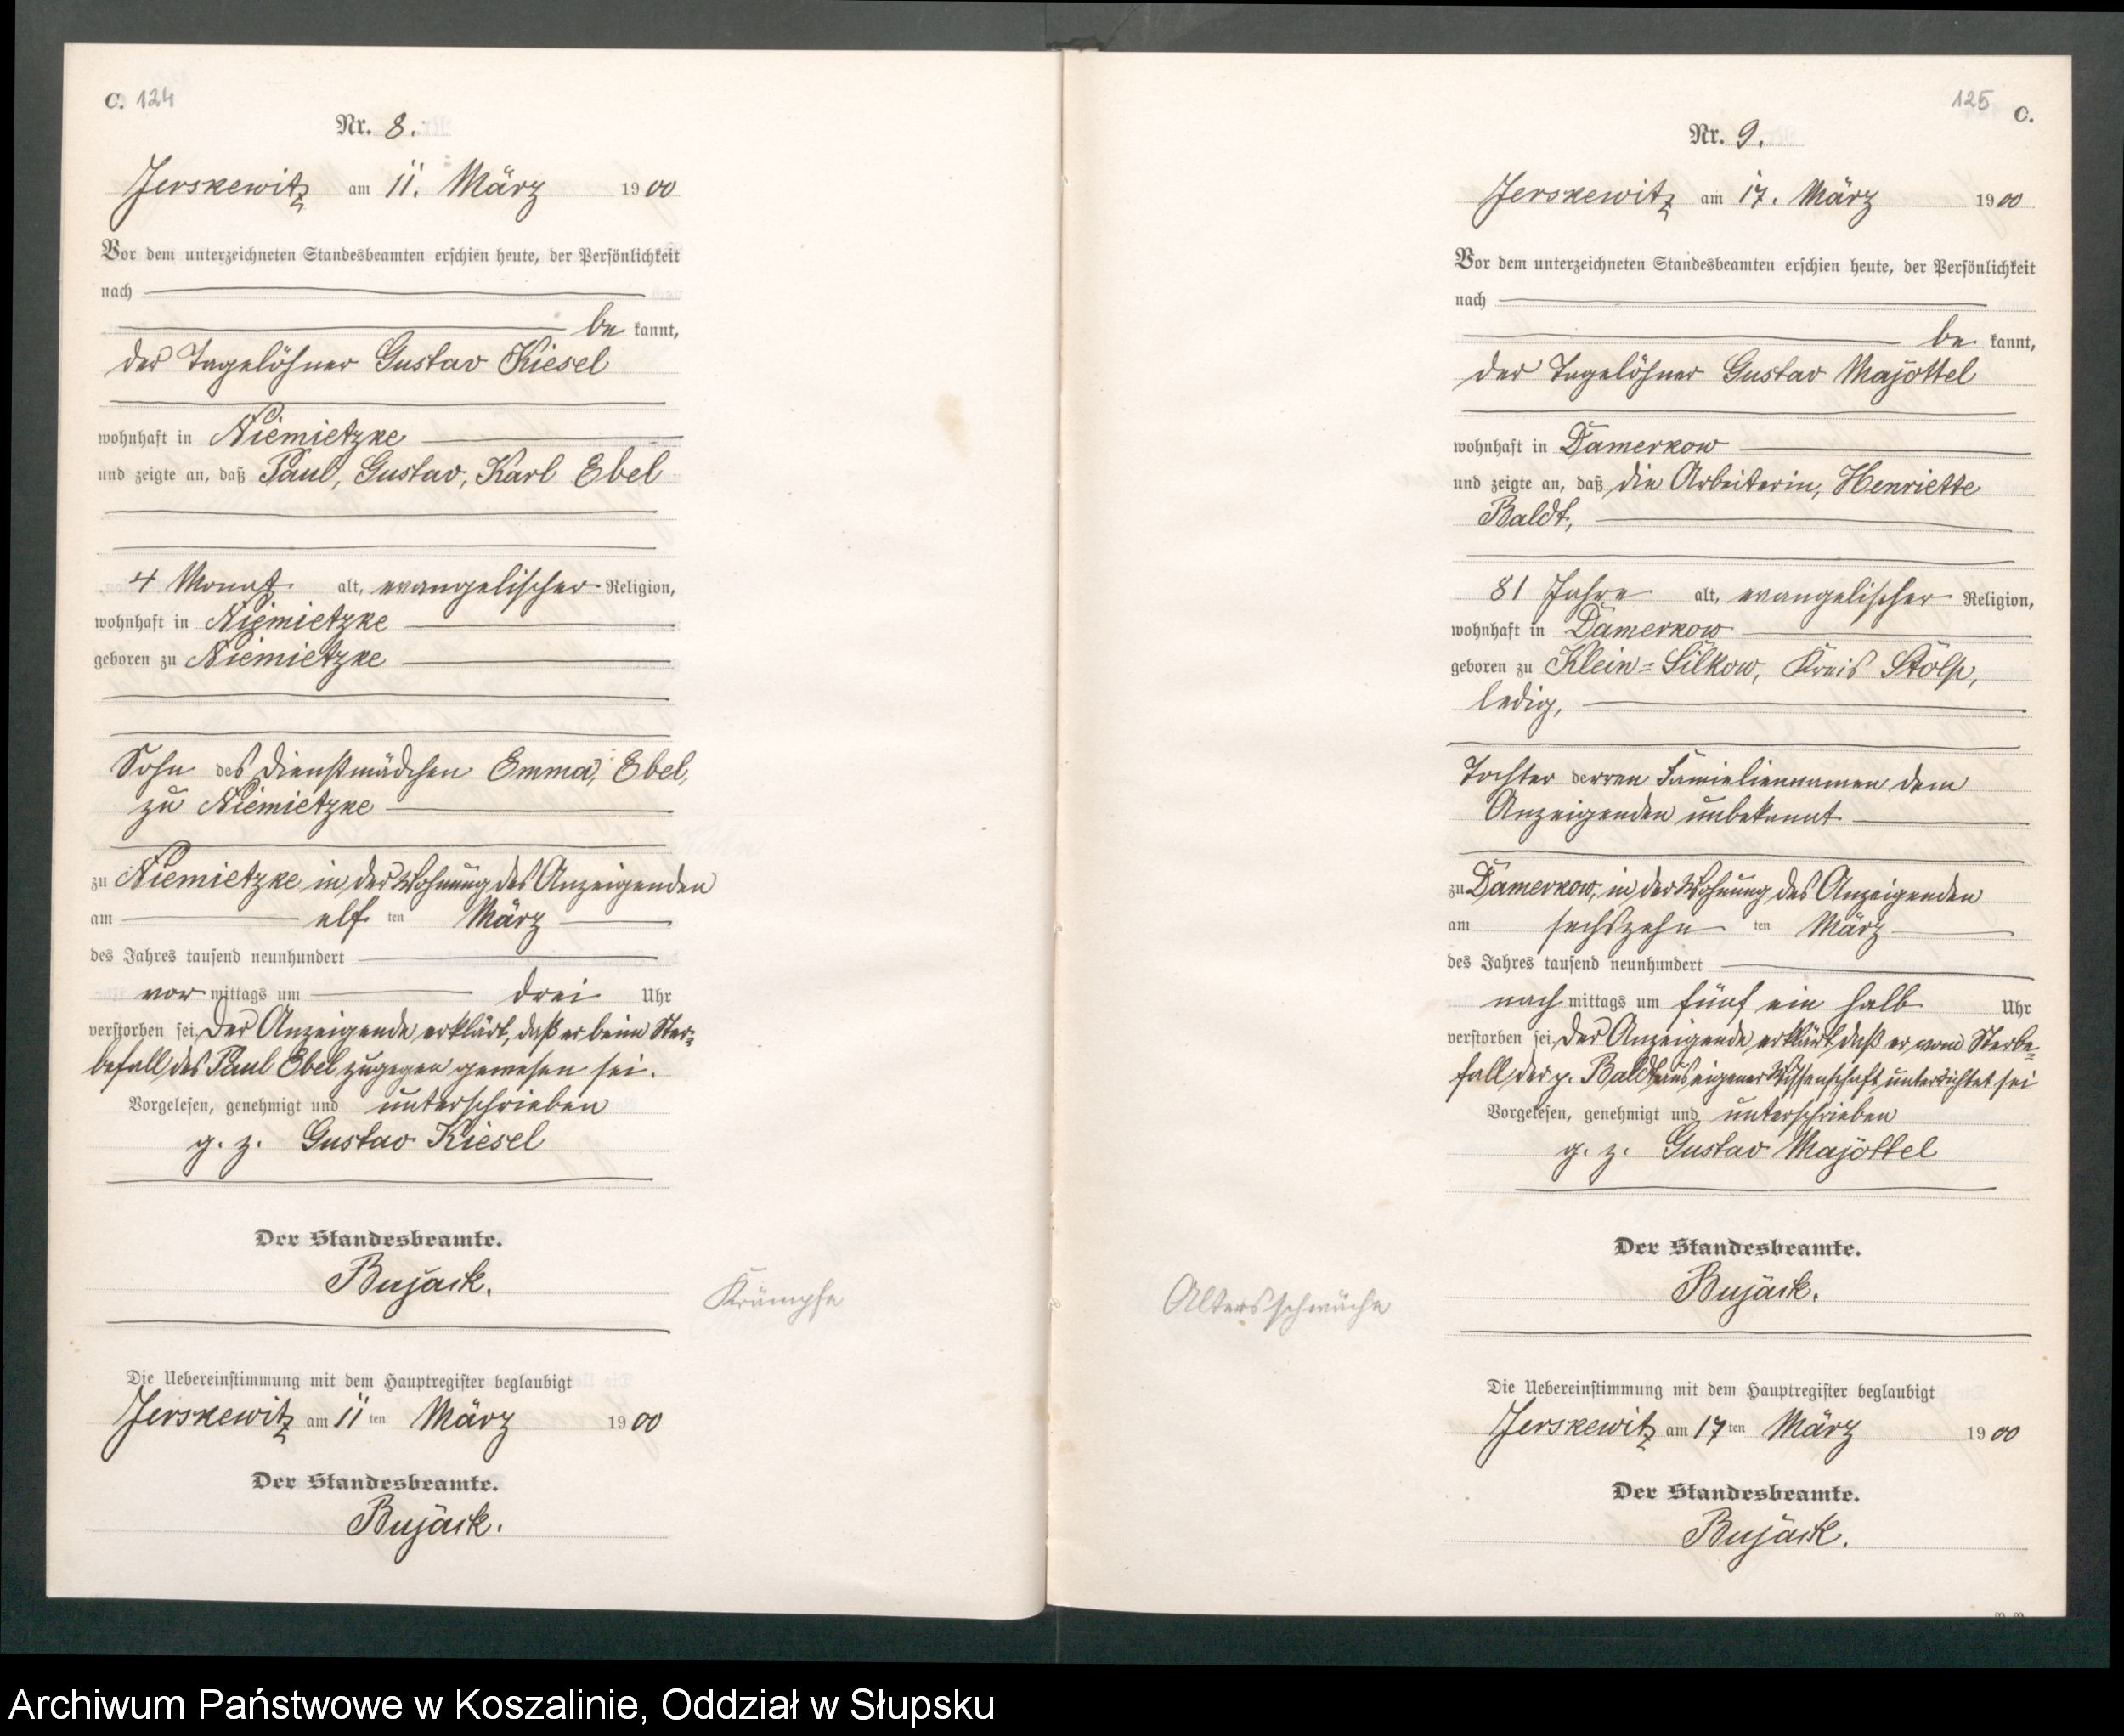 C. 124
Nr. 8.
Jerskewitz am 11. März 1900
Vor dem unterzeichneten Standesbeamten erschien heute, der Persönlichkeit
nach
be kannt,
der Tagelöhner Gustav Kiesel
wohnhaft in Niemietzke
und zeigte an, daß Paul, Gustav, Karl Ebel
4 Monat alt, evangelischer Religion,
wohnhaft in Niemietzke
geboren zu Niemietzke
Sohn des Dienstmädchen Emma, Ebel,
zu Niemietzke
zu Niemietzke in der Wohnung des Anzeigenden
am elf ten März
des Jahres tausend neunhundert
vor mittags um drei Uhr
verstorben sei. Der Anzeigende erklärt, daß er beim Ster-
befall des Paul Ebel zugegen gewesen sei.
Vorgelesen, genehmigt und unterschrieben
g. z. Gustav Kiesel
Der Standesbeamte.
Bujack.
Krämpfe
Die Uebereinstimmung mit dem Hauptregister beglaubigt
Jerskewitz am 11 ten März 1900
Der Standesbeamte.
Bujack.
125 C.
Nr. 9.
Jerskewitz am 17. März 1900
Vor dem unterzeichneten Standesbeamten erschien heute, der Persönlichkeit
nach
be kannt,
der Tagelöhner Gustav Majöttel
wohnhaft in Damerkow
und zeigte an, daß die Arbeiterin, Henriette
Baldt,
81 Jahre alt, evangelischer Religion,
wohnhaft in Damerkow
geboren zu Klein-Silkow, Kreis Stolp,
ledig,
Tochter derren Familiennamen dem
Anzeigenden unbekannt
zu Damerkow, in der Wohnung des Anzeigenden
am sechszehn ten März
des Jahres tausend neunhundert
nach mittags um fünf ein halb Uhr
verstorben sei. Der Anzeigende erklärt daß er vom Sterbe-
fall der p. Baldt aus eigener Wissenschaft unterrichtet sei
Vorgelesen, genehmigt und unterschrieben
g. z. Gustav Majöttel
Der Standesbeamte.
Bujack.
Altersschwäche
Die Uebereinstimmung mit dem Hauptregister beglaubigt
Jerskewitz am 17 ten März 1900
Der Standesbeamte.
Bujack.
Archiwum Państwowe w Koszalinie, Oddział w Słupsku